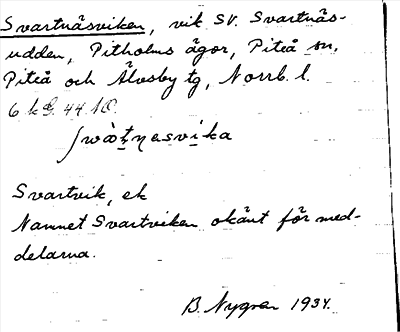 Svartnäsviken, vik SV. Svartnäs-
udden, Pitholms ägor, Piteå sn,
Piteå och Älvsby tg, Norrb. l.
6 k G. 44 NO.
Svartvik, ek
Namnet Svartviken okänt för med-
delarna.
B. Nygren 1934.